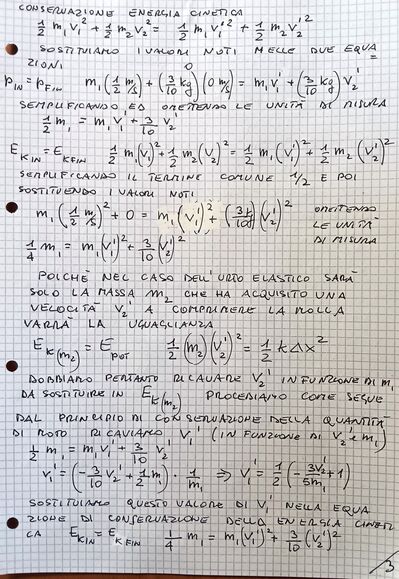 CONSERVAZIONE ENERGIA CINETICA
1/2 m₁V₁² + 1/2 m₂V₂² = 1/2 m₁V₁'² + 1/2 m₂V₂'²
SOSTITUIAMO I VALORI NOTI NELLE DUE EQUA
ZIONI
P_IN = P_FIN m₁(1/2 m/s) + (3/10 kg)(0 m/s) = m₁V₁' + (3/10 kg)V₂'
SEMPLIFICANDO ED OMETTENDO LE UNITÀ DI MISURA
1/2 m₁ = m₁V₁' + 3/10 V₂'
E_KIN = E_KFIN 1/2 m₁(V₁)² + 1/2 m₂(V₂)² = 1/2 m₁(V₁')² + 1/2 m₂(V₂')²
SEMPLIFICANDO IL TERMINE COMUNE 1/2 E POI
SOSTITUENDO I VALORI NOTI
m₁(1/2 m/s)² + 0 = m₁(V₁')² + (3/10 kg)(V₂')² OMETTENDO
LE UNITÀ
1/4 m₁ = m₁(V₁')² + 3/10(V₂')² DI MISURA
POICHÈ NEL CASO DELL'URTO ELASTICO SARÀ
SOLO LA MASSA m₂ CHE HA ACQUISITO UNA
VELOCITÀ V₂' A COMPRIMERE LA MOLLA
VARRÀ LA UGUAGLIANZA
E_K(m₂) = E_POT 1/2 (m₂)(V₂')² = 1/2 k Δx²
DOBBIAMO PERTANTO RICAVARE V₂' IN FUNZIONE DI m₁
DA SOSTITUIRE IN E_K(m₂) PROCEDIAMO COME SEGUE
DAL PRINCIPIO DI CONSERVAZIONE DELLA QUANTITÀ
DI MOTO RICAVIAMO V₁' (IN FUNZIONE DI V₂ E m₁)
1/2 m₁ = m₁V₁' + 3/10 V₂'
V₁' = (-3/10 V₂' + 1/2 m₁) · 1/m₁ ⇒ V₁' = 1/2 (-3V₂'/5m₁ + 1)
SOSTITUIAMO QUESTO VALORE DI V₁' NELLA EQUA
ZIONE DI CONSERVAZIONE DELLA ENERGIA CINETI
CA E_KIN = E_KFIN 1/4 m₁ = m₁(V₁')² + 3/10 (V₂')²
/3